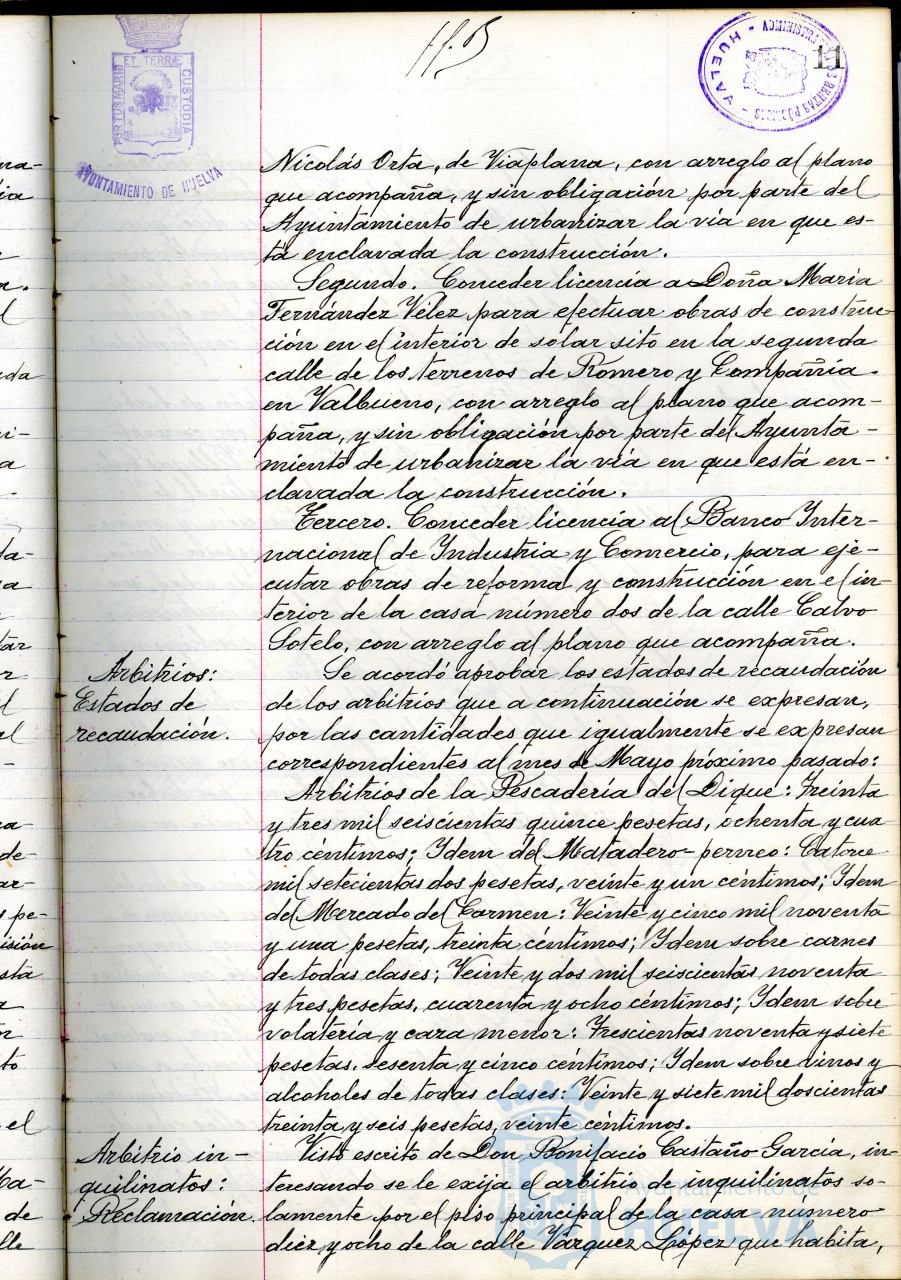 11
PORTUS MARIS ET TERRÆ CUSTODIA
AYUNTAMIENTO DE HUELVA
HUELVA
Nicolás Orta, de Viaplana, con arreglo al plano
que acompaña, y sin obligación por parte del
Ayuntamiento de urbanizar la vía en que es-
tá enclavada la construcción.
Segundo. Conceder licencia a Doña María
Fernández Vélez para efectuar obras de construc-
ción en el interior de solar sito en la segunda
calle de los terrenos de Romero y Compañía
en Valbueno, con arreglo al plano que acom-
paña, y sin obligación por parte del Ayunta-
miento de urbanizar la vía en que está en-
clavada la construcción.
Tercero. Conceder licencia al Banco Inter-
nacional de Industria y Comercio, para eje-
cutar obras de reforma y construcción en el in-
terior de la casa número dos de la calle Calvo
Sotelo, con arreglo al plano que acompaña.
Arbitrios:
Estados de
recaudación.
Se acordó aprobar los estados de recaudación
de los arbitrios que a continuación se expresan,
por las cantidades que igualmente se expresan
correspondientes al mes de Mayo próximo pasado:
Arbitrios de la Pescadería del Dique: Treinta
y tres mil seiscientas quince pesetas, ochenta y cua
tro céntimos; Idem del Matadero-perneo: Catorce
mil setecientas dos pesetas, veinte y un céntimos; Idem
del Mercado del Carmen: Veinte y cinco mil noventa
y una pesetas, treinta céntimos; Idem sobre carnes
de todas clases; Veinte y dos mil seiscientas noventa
y tres pesetas, cuarenta y ocho céntimos; Idem sobre
volatería y caza menor: Trescientas noventa y siete
pesetas, sesenta y cinco céntimos; Idem sobre vinos y
alcoholes de todas clases: Veinte y siete mil doscientas
treinta y seis pesetas, veinte céntimos.
Arbitrio in-
quilinatos:
Reclamación.
Visto escrito de Don Bonifacio Castaño García, in-
teresando se le exija el arbitrio de inquilinatos so-
lamente por el piso principal de la casa numero
diez y ocho de la calle Vázquez López que habita,
Ayuntamiento de
HUELVA